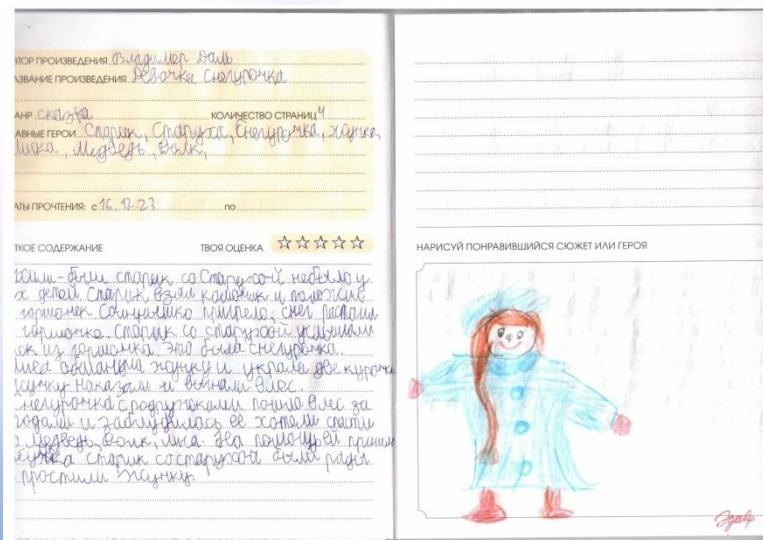 ТОР ПРОИЗВЕДЕНИЯ Владимер Даль
АЗВАНИЕ ПРОИЗВЕДЕНИЯ Девочка Снегурочка
АНР сказка КОЛИЧЕСТВО СТРАНИЦ 4
АВНЫЕ ГЕРОИ Старик, Старуха, Снегурочка, жучка
Лиска, Медведь, Волк,
АТЫ ПРОЧТЕНИЯ: с 16.12.23 по
ТКОЕ СОДЕРЖАНИЕ ТВОЯ ОЦЕНКА
жили-были старик со Старухой небыло у
х детей. Старик взял комочик и положил
горшочек. Солнышко пригрело, снег растаял
горшочке. Старик со старухой услышали
ок из горшочка. Это была снегурочка.
Лиса обманула жучку и украла две курочки
жучку наказали и выгнали влес.
негурочка сподружками пошла влес за
годами и заблудилась её хотели спасти
Медведь, Волк, лиса. На помощь ей пришла
старик состарухой были рады
простили Жучку.
НАРИСУЙ ПОНРАВИВШИЙСЯ СЮЖЕТ ИЛИ ГЕРОЯ